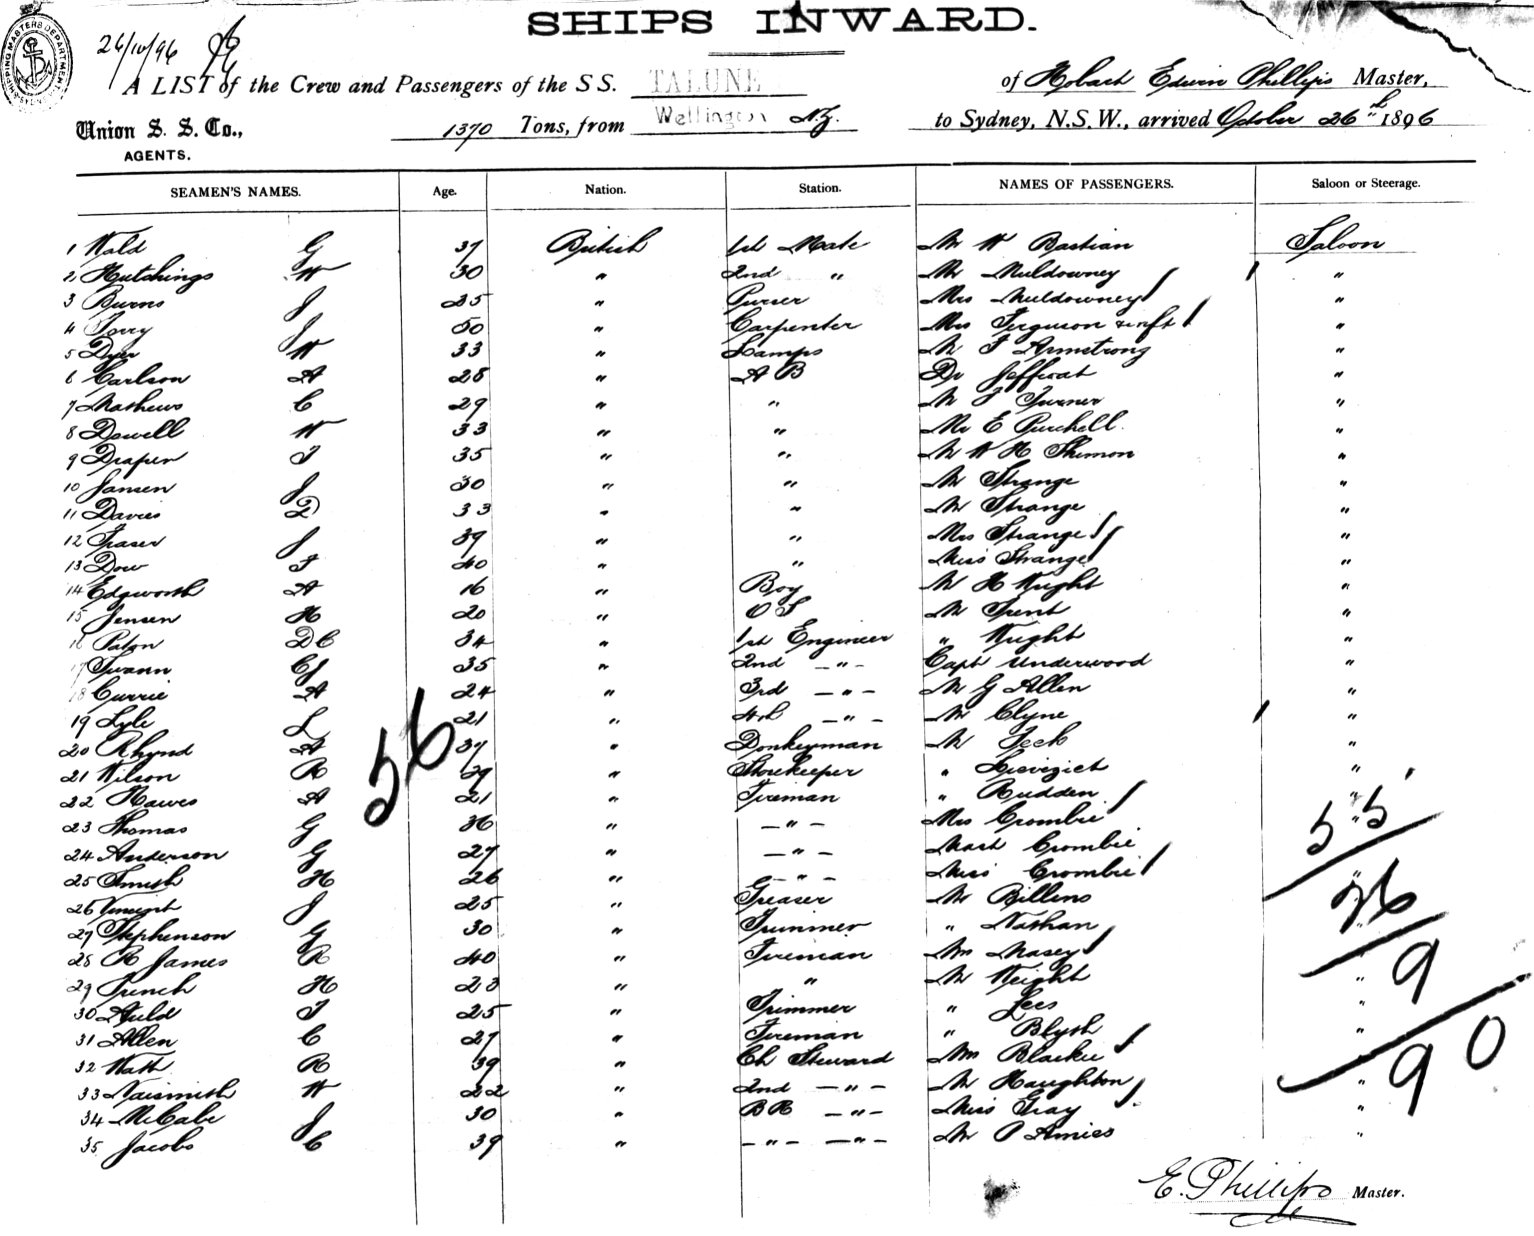 SHIPS INWARD.
SHIPPING MASTERS DEPARTMENT
26/10/96
A LIST of the Crew and Passengers of the S S. TALUNE of Hobart Edwin Phillips Master,
Union S. S. Co.,
AGENTS.
1370 Tons, from Wellington N.Z. to Sydney, N.S.W., arrived October 26th 1896
SEAMEN'S NAMES. Age. Nation. Station. NAMES OF PASSENGERS. Saloon or Steerage.
1 Wald G 37 British 1st Mate Mr W Bastian Saloon
2 Hutchings W 30 " 2nd " Mr Muldowney "
3 Burns J 25 " Purser Mrs Muldowney "
4 Torry J 50 " Carpenter Mrs Ferguson & inft "
5 Dyer W 33 " Lamps Mr J Armstrong "
6 Carlson A 28 " A B Dr Jeffreat "
7 Mathews C 29 " " Mr J Turner "
8 Dowell W 33 " " Mr E Purchell. "
9 Draper J 35 " " Mr W H Shimon "
10 Jansen J 30 " " Mr Strange "
11 Davies D 33 " " Mr Strange "
12 Fraser J 39 " " Mrs Strange "
13 Dow J 40 " " Miss Strange "
14 Edgworth A 16 " Boy Mr H Wright "
15 Jensen H 20 " O S Mr Trent "
16 Paton D C 34 " 1st Engineer " Wright "
17 Swann C J 35 " 2nd - " - Capt Underwood "
18 Currie A 24 " 3rd - " - Mr G Allen "
19 Lyle L 21 " 4th - " - Mr Clyne "
20 Rhynd A 37 " Donkeyman Mr Jeck "
21 Wilson R 29 " Storekeeper " "
22 Hawes A 21 " Fireman " Rudden "
23 Thomas G 36 " - " - Mrs Crombie "
24 Anderson G 27 " - " - Mast Crombie
25 Smith H 26 " - " - Miss Crombie "
26 Vincent J 25 " Greaser Mr Billens
27 Stephenson G 30 " Trimmer " Nathan "
28 R James R 40 " Fireman Mrs Masey "
29 French H 23 " " Mr Weight "
30 Auld J 25 " Trimmer " Lees "
31 Allen C 27 " Fireman " Blyth "
32 Watt R 39 " Ch Steward Mrs Blackie
33 Naismith W 22 " 2nd - " - Mr Haughton "
34 McCabe J 30 " B R - " - Miss Gray "
35 Jacobs C 39 " - " - - " - Mr P Amies "
56
55
26
9
90
E. Phillips Master.